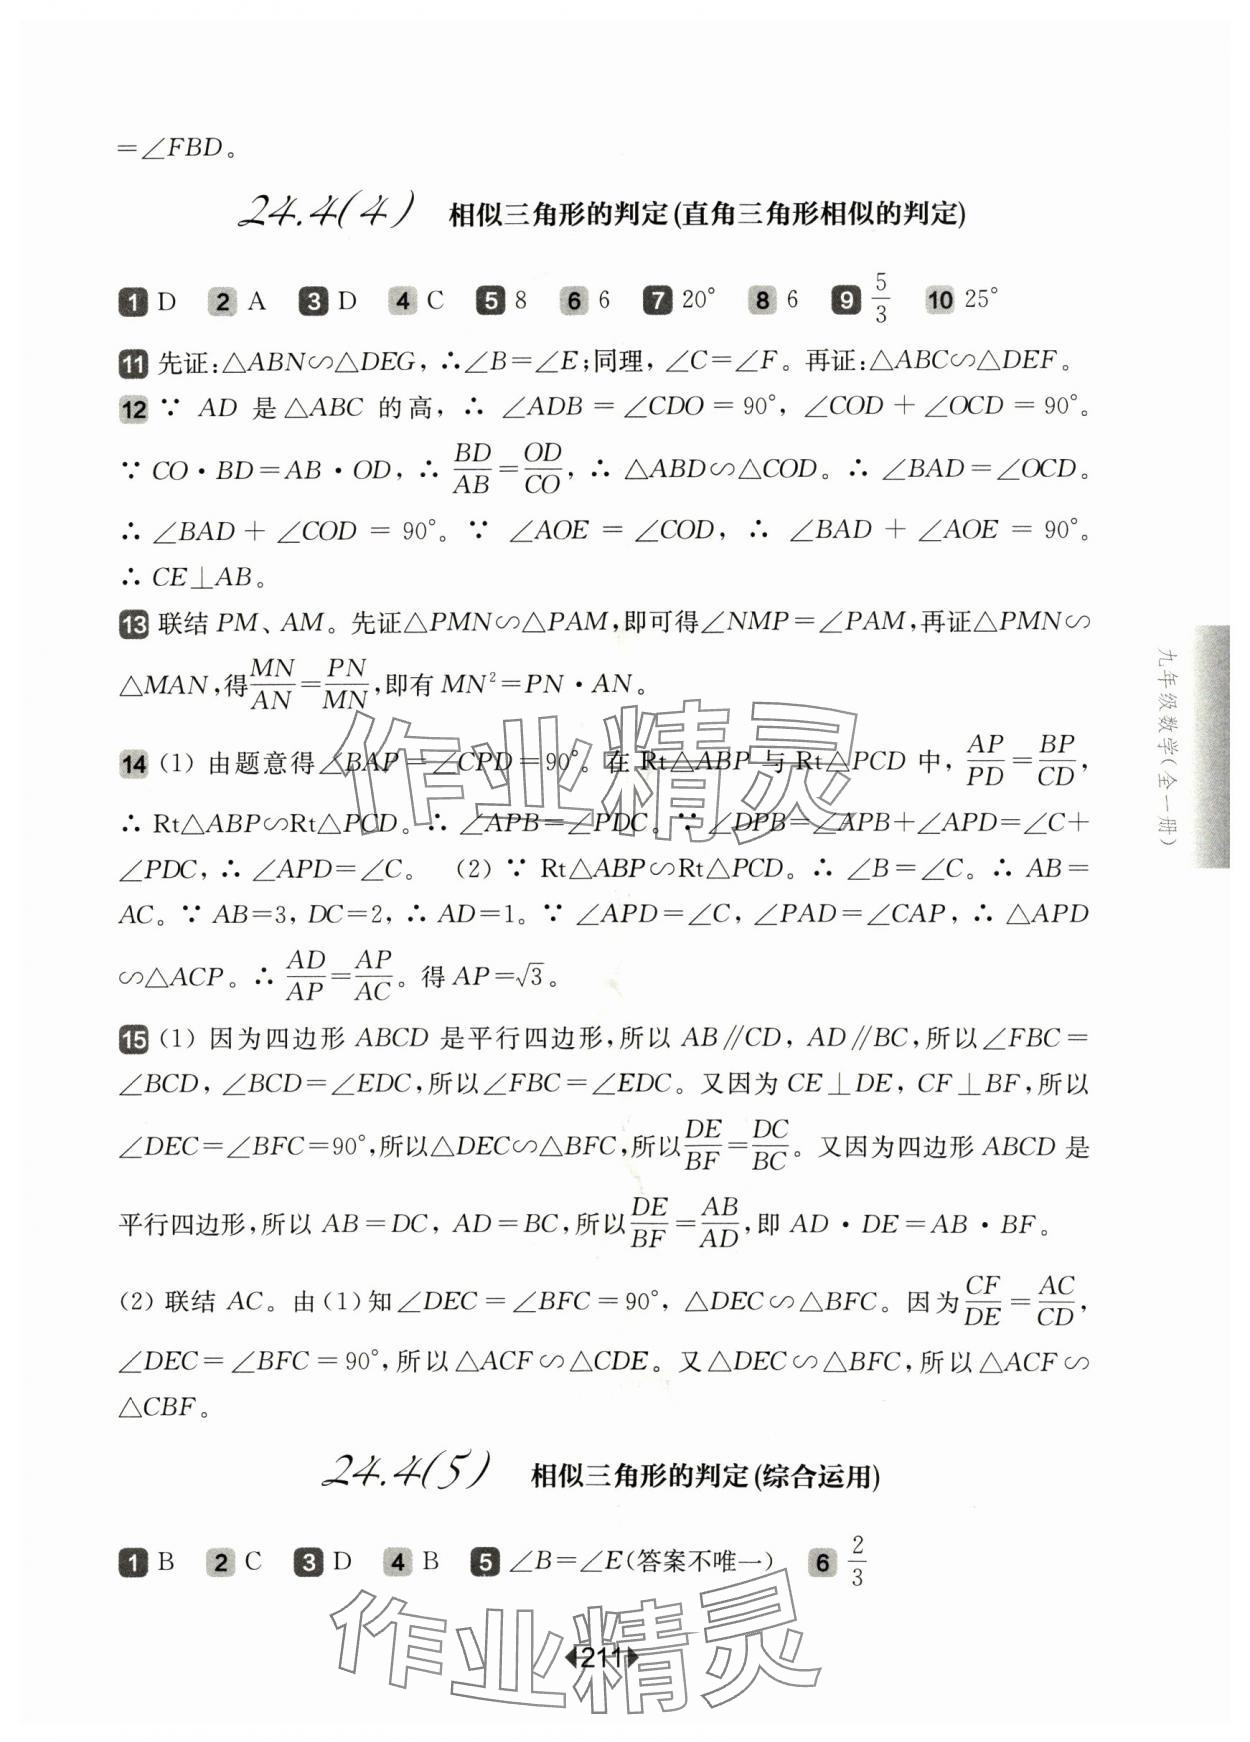 =∠FBD。
24.4(4) 相似三角形的判定(直角三角形相似的判定)
1 D 2 A 3 D 4 C 5 8 6 6 7 20° 8 6 9 5/3 10 25°
11 先证:△ABN∽△DEG, ∴∠B=∠E;同理, ∠C=∠F。再证:△ABC∽△DEF。
12 ∵ AD 是△ABC 的高, ∴ ∠ADB = ∠CDO = 90°, ∠COD + ∠OCD = 90°。
∵ CO·BD=AB·OD, ∴ BD/AB=OD/CO, ∴ △ABD∽△COD。∴ ∠BAD=∠OCD。
∴ ∠BAD + ∠COD = 90°。∵ ∠AOE = ∠COD, ∴ ∠BAD + ∠AOE = 90°。
∴ CE⊥AB。
13 联结 PM、AM。先证△PMN∽△PAM,即可得∠NMP=∠PAM,再证△PMN∽
△MAN,得MN/AN=PN/MN,即有 MN²=PN·AN。
14 (1) 由题意得∠BAP=∠CPD=90°。在 Rt△ABP 与 Rt△PCD 中, AP/PD=BP/CD,
∴ Rt△ABP∽Rt△PCD。∴ ∠APB=∠PDC。∵ ∠DPB=∠APB+∠APD=∠C+
∠PDC, ∴ ∠APD=∠C。 (2) ∵ Rt△ABP∽Rt△PCD。∴ ∠B=∠C。∴ AB=
AC。∵ AB=3, DC=2, ∴ AD=1。∵ ∠APD=∠C, ∠PAD=∠CAP, ∴ △APD
∽△ACP。∴ AD/AP=AP/AC。得 AP=√3。
15 (1) 因为四边形 ABCD 是平行四边形,所以 AB∥CD, AD∥BC,所以∠FBC=
∠BCD, ∠BCD=∠EDC,所以∠FBC=∠EDC。又因为 CE⊥DE, CF⊥BF,所以
∠DEC=∠BFC=90°,所以△DEC∽△BFC,所以DE/BF=DC/BC。又因为四边形 ABCD 是
平行四边形,所以 AB=DC, AD=BC,所以DE/BF=AB/AD,即 AD·DE=AB·BF。
(2) 联结 AC。由(1)知∠DEC=∠BFC=90°, △DEC∽△BFC。因为CF/DE=AC/CD,
∠DEC=∠BFC=90°,所以△ACF∽△CDE。又△DEC∽△BFC,所以△ACF∽
△CBF。
24.4(5) 相似三角形的判定(综合运用)
1 B 2 C 3 D 4 B 5 ∠B=∠E(答案不唯一) 6 2/3
211
九年级数学(全一册)
作业精灵
作业精灵